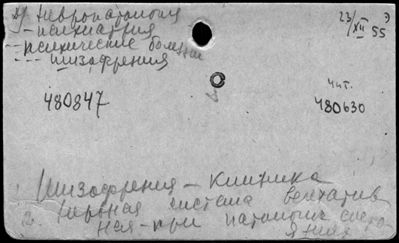 Невропатология
- психиатрия
-- психические болезни
--- шизофрения
23/XII 55
480847
чит.
480630
1. Шизофрения – Клиника
2. Нервная система вегетатив
ная – при патолог. состо
яния